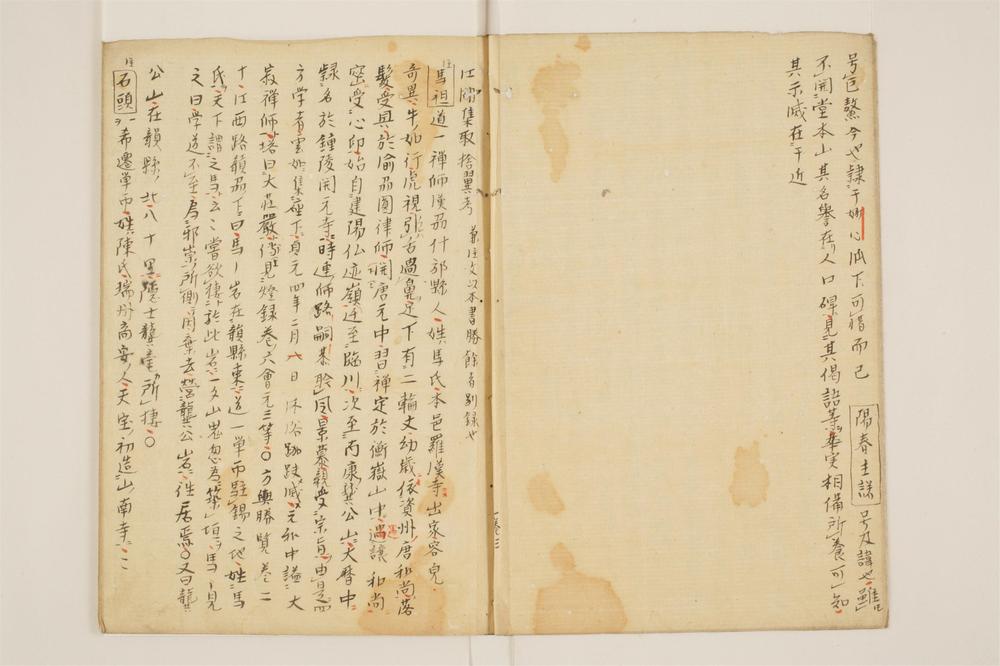 号巨鰲今也隷于妙心派下可惜而已 陽春主諾 号及諱也雖住
不開堂本山其名誉在人口碑見其偈語等華実相備所養可知
其示滅在于近
江湖集取捨翼考 兼注文以本書勝餘者别録也
注 馬祖道一禅師漢州什邡縣人姓馬氏本邑羅漢寺出家容皃
奇異牛如行虎視引舌過鼻足下有二輪文幼歳依資州唐和尚落
髪受具於渝州圓律師開唐元中習禅定於衡嶽山中遇讓和尚
密受心印始自建陽仏迹嶺迁至臨川次至南康龔公山大暦中
隷名於鍾陵開元寺時連師路嗣恭聆風景慕親受宗旨由是四
方学者雲如集座下貞元四年二月一日沐浴跏趺滅元和中諡大
寂禅師塔曰大荘嚴見燈録巻六會元三等○方輿勝覧巻二
十江西路贛州下曰馬丨岩在贛縣東道一単帀駐錫之地姓馬
氏天下謂之馬云嘗欲棲於此岩一夕山鬼忽為築垣馬丨見
之曰学道不至為邪祟所側因棄去営龔公岩徃居焉○又曰龔
公山在贛縣北八十里隠士龔亳所棲○
注 石頭 希遷単帀姓陳氏瑞州高安人天宝初造山南寺
巻三